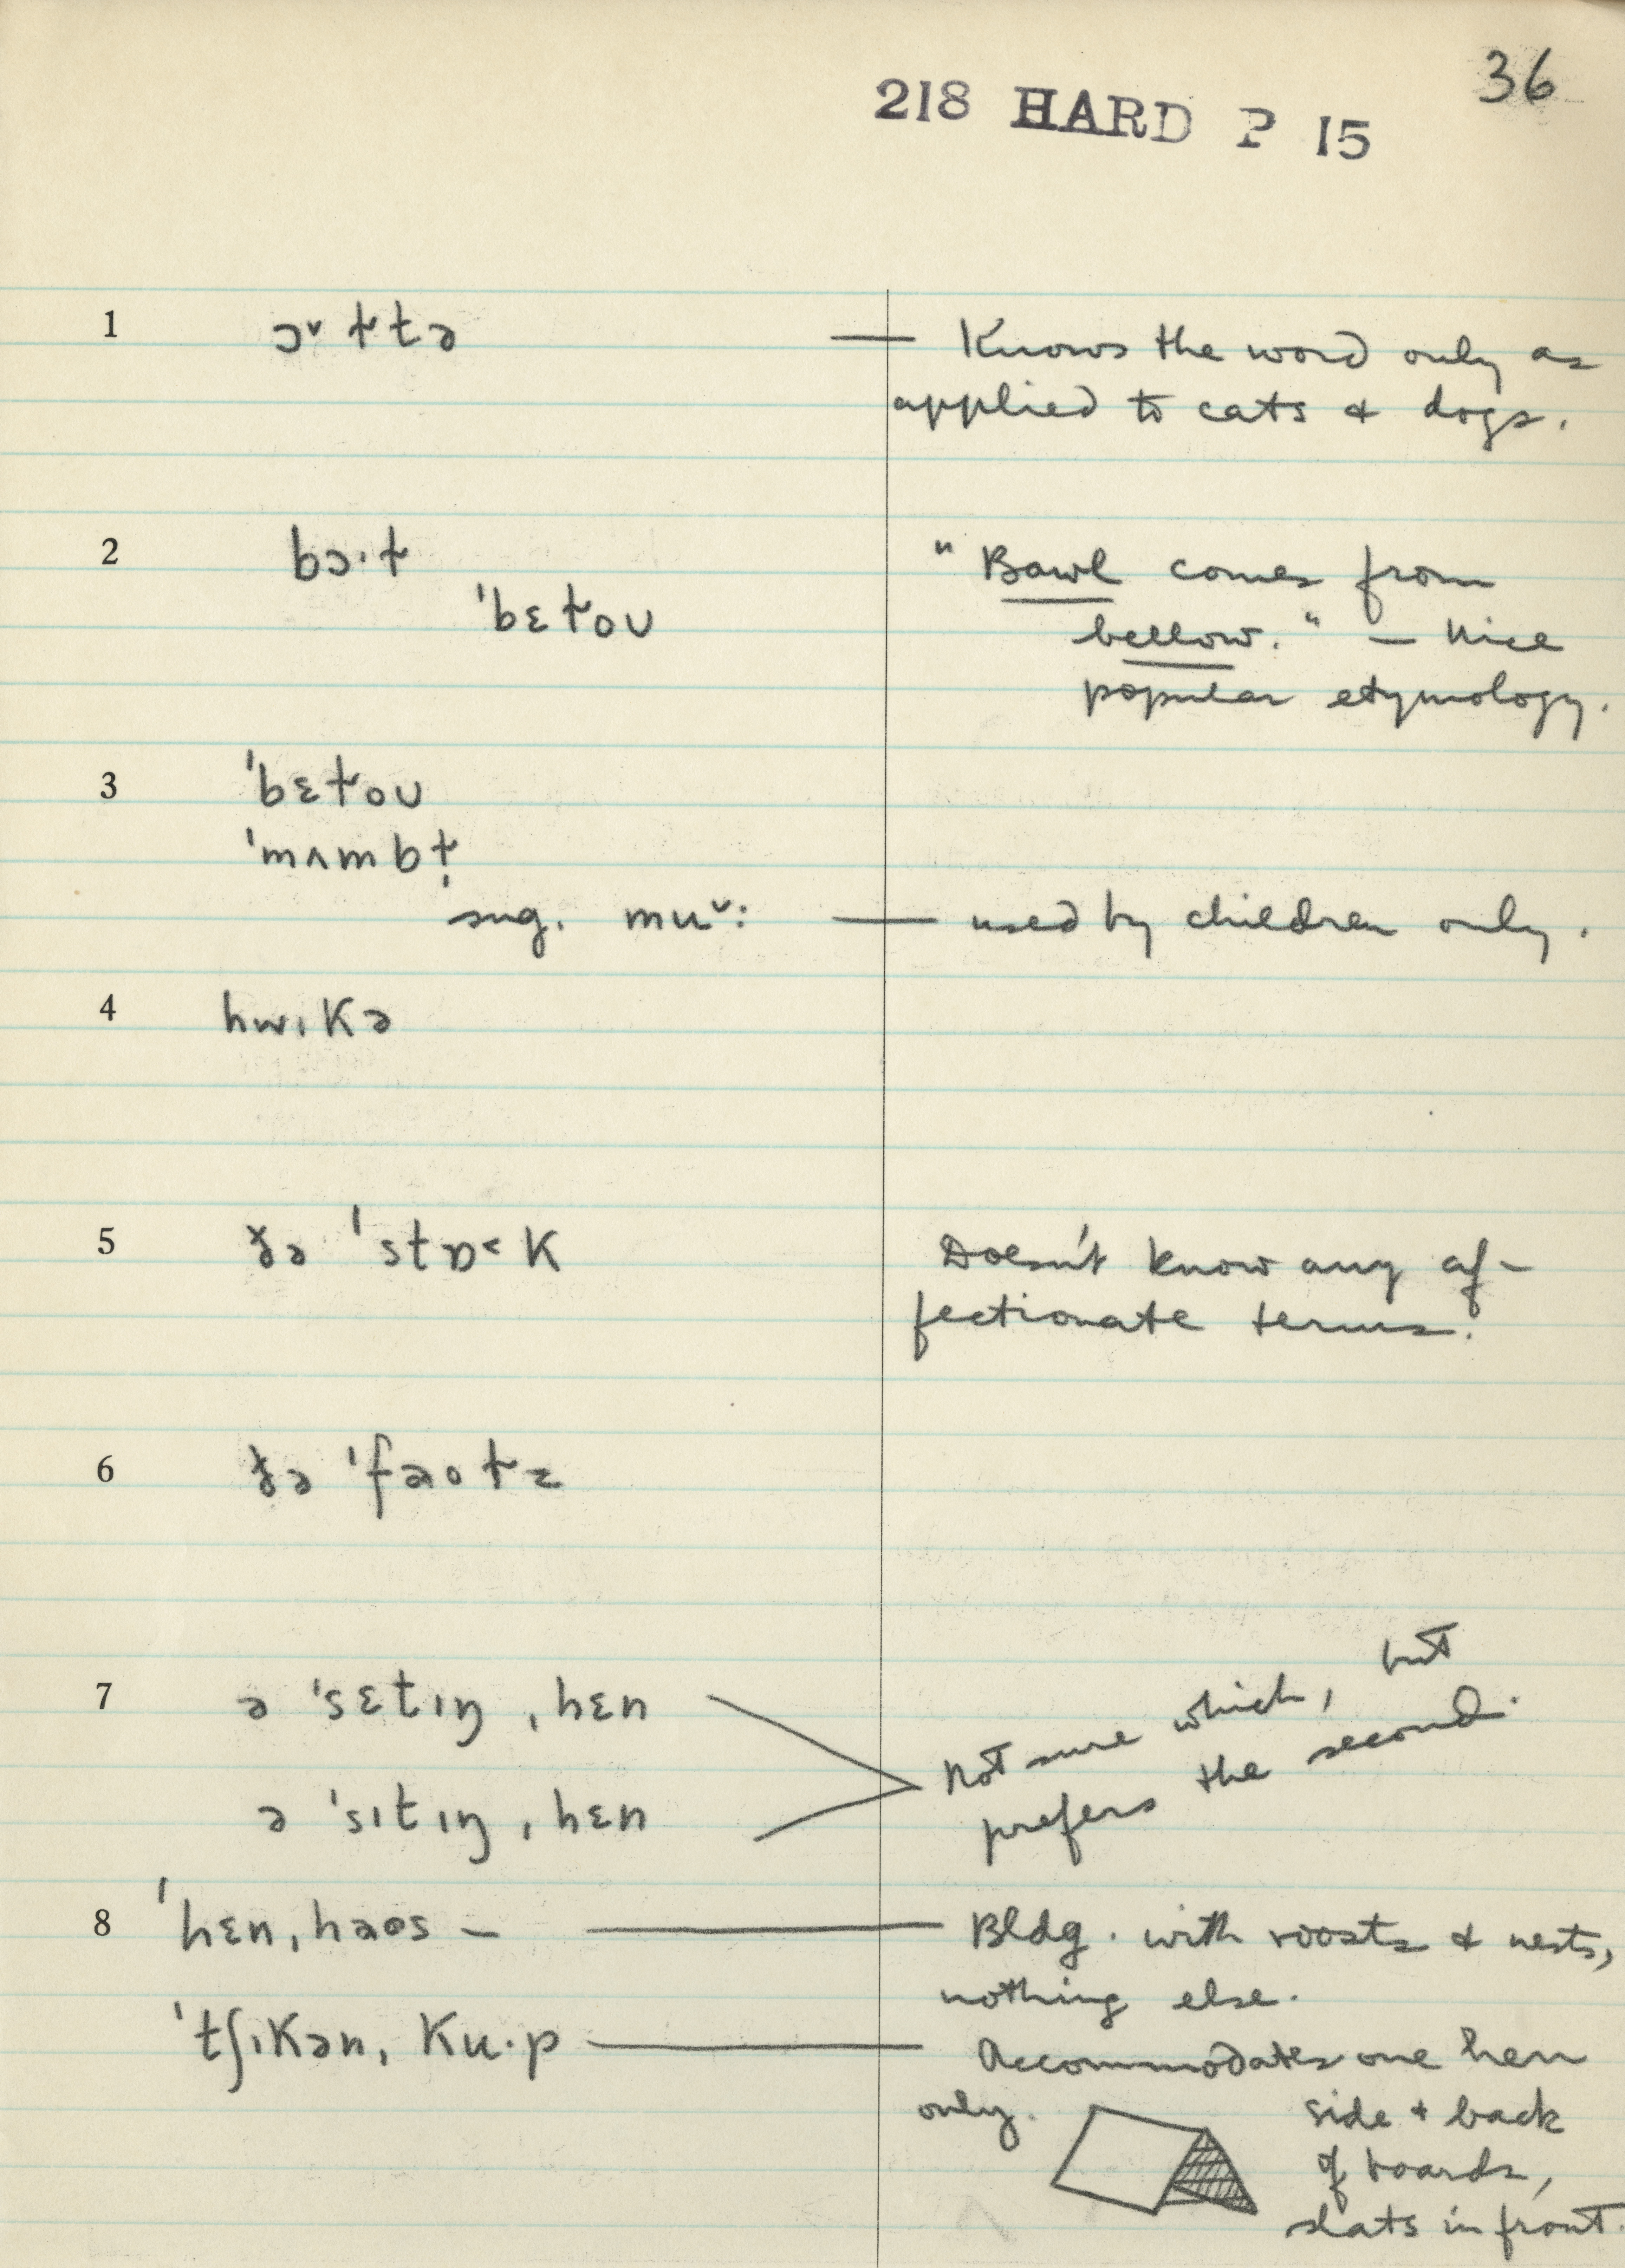 36
218 HARD P 15
1 ɔ˅ɫtə — Knows the word only as
applied to cats & dogs.
2 bɔ·ɫ "Bawl comes from
ˈbɛɫoʊ bellow." — Nice
popular etymology.
3 ˈbɛɫoʊ
ˈmʌmbɫ̩
sug. mu˅: — used by children only.
4 hwɪkə
5 ðə ˈstɒ˂k Doesn't know any af-
fectionate terms.
6 ðə ˈfaʊɫz
7 ə ˈsɛtɪŋ ˌhɛn Not sure which, but
ə ˈsɪtɪŋ ˌhɛn prefers the second.
8 ˈhɛnˌhaʊs — Bldg. with roosts & nests,
nothing else.
ˈtʃɪkənˌku·p — Accommodates one hen
only. side + back
of boards,
slats in front.